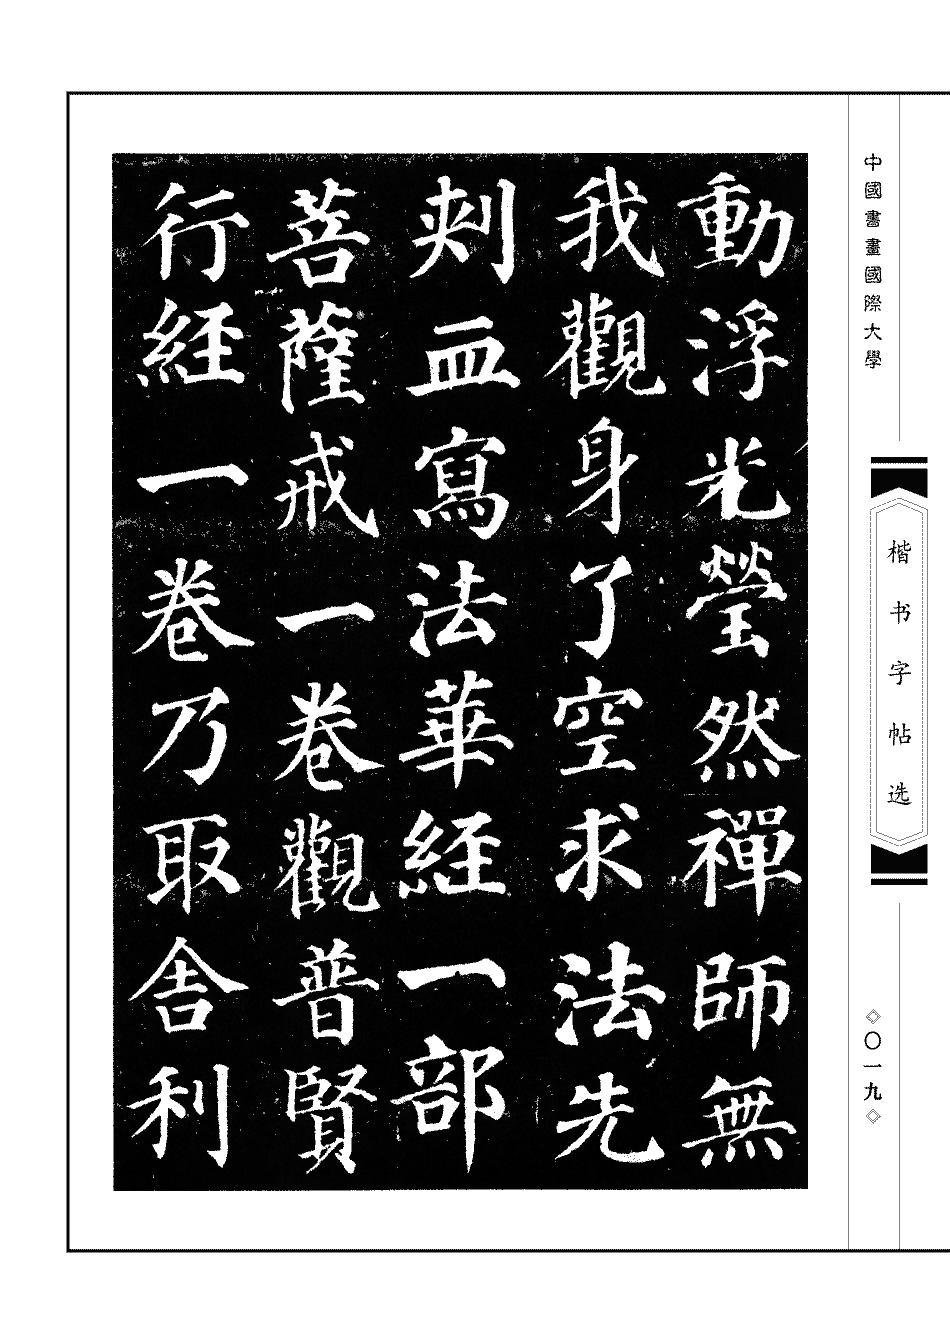 中國書畫國際大學
楷书字帖选
〇一九
動浮光瑩然禪師無
我觀身了空求法先
刾血寫法華經一部
菩薩戒一卷觀普賢
行經一卷乃取舍利